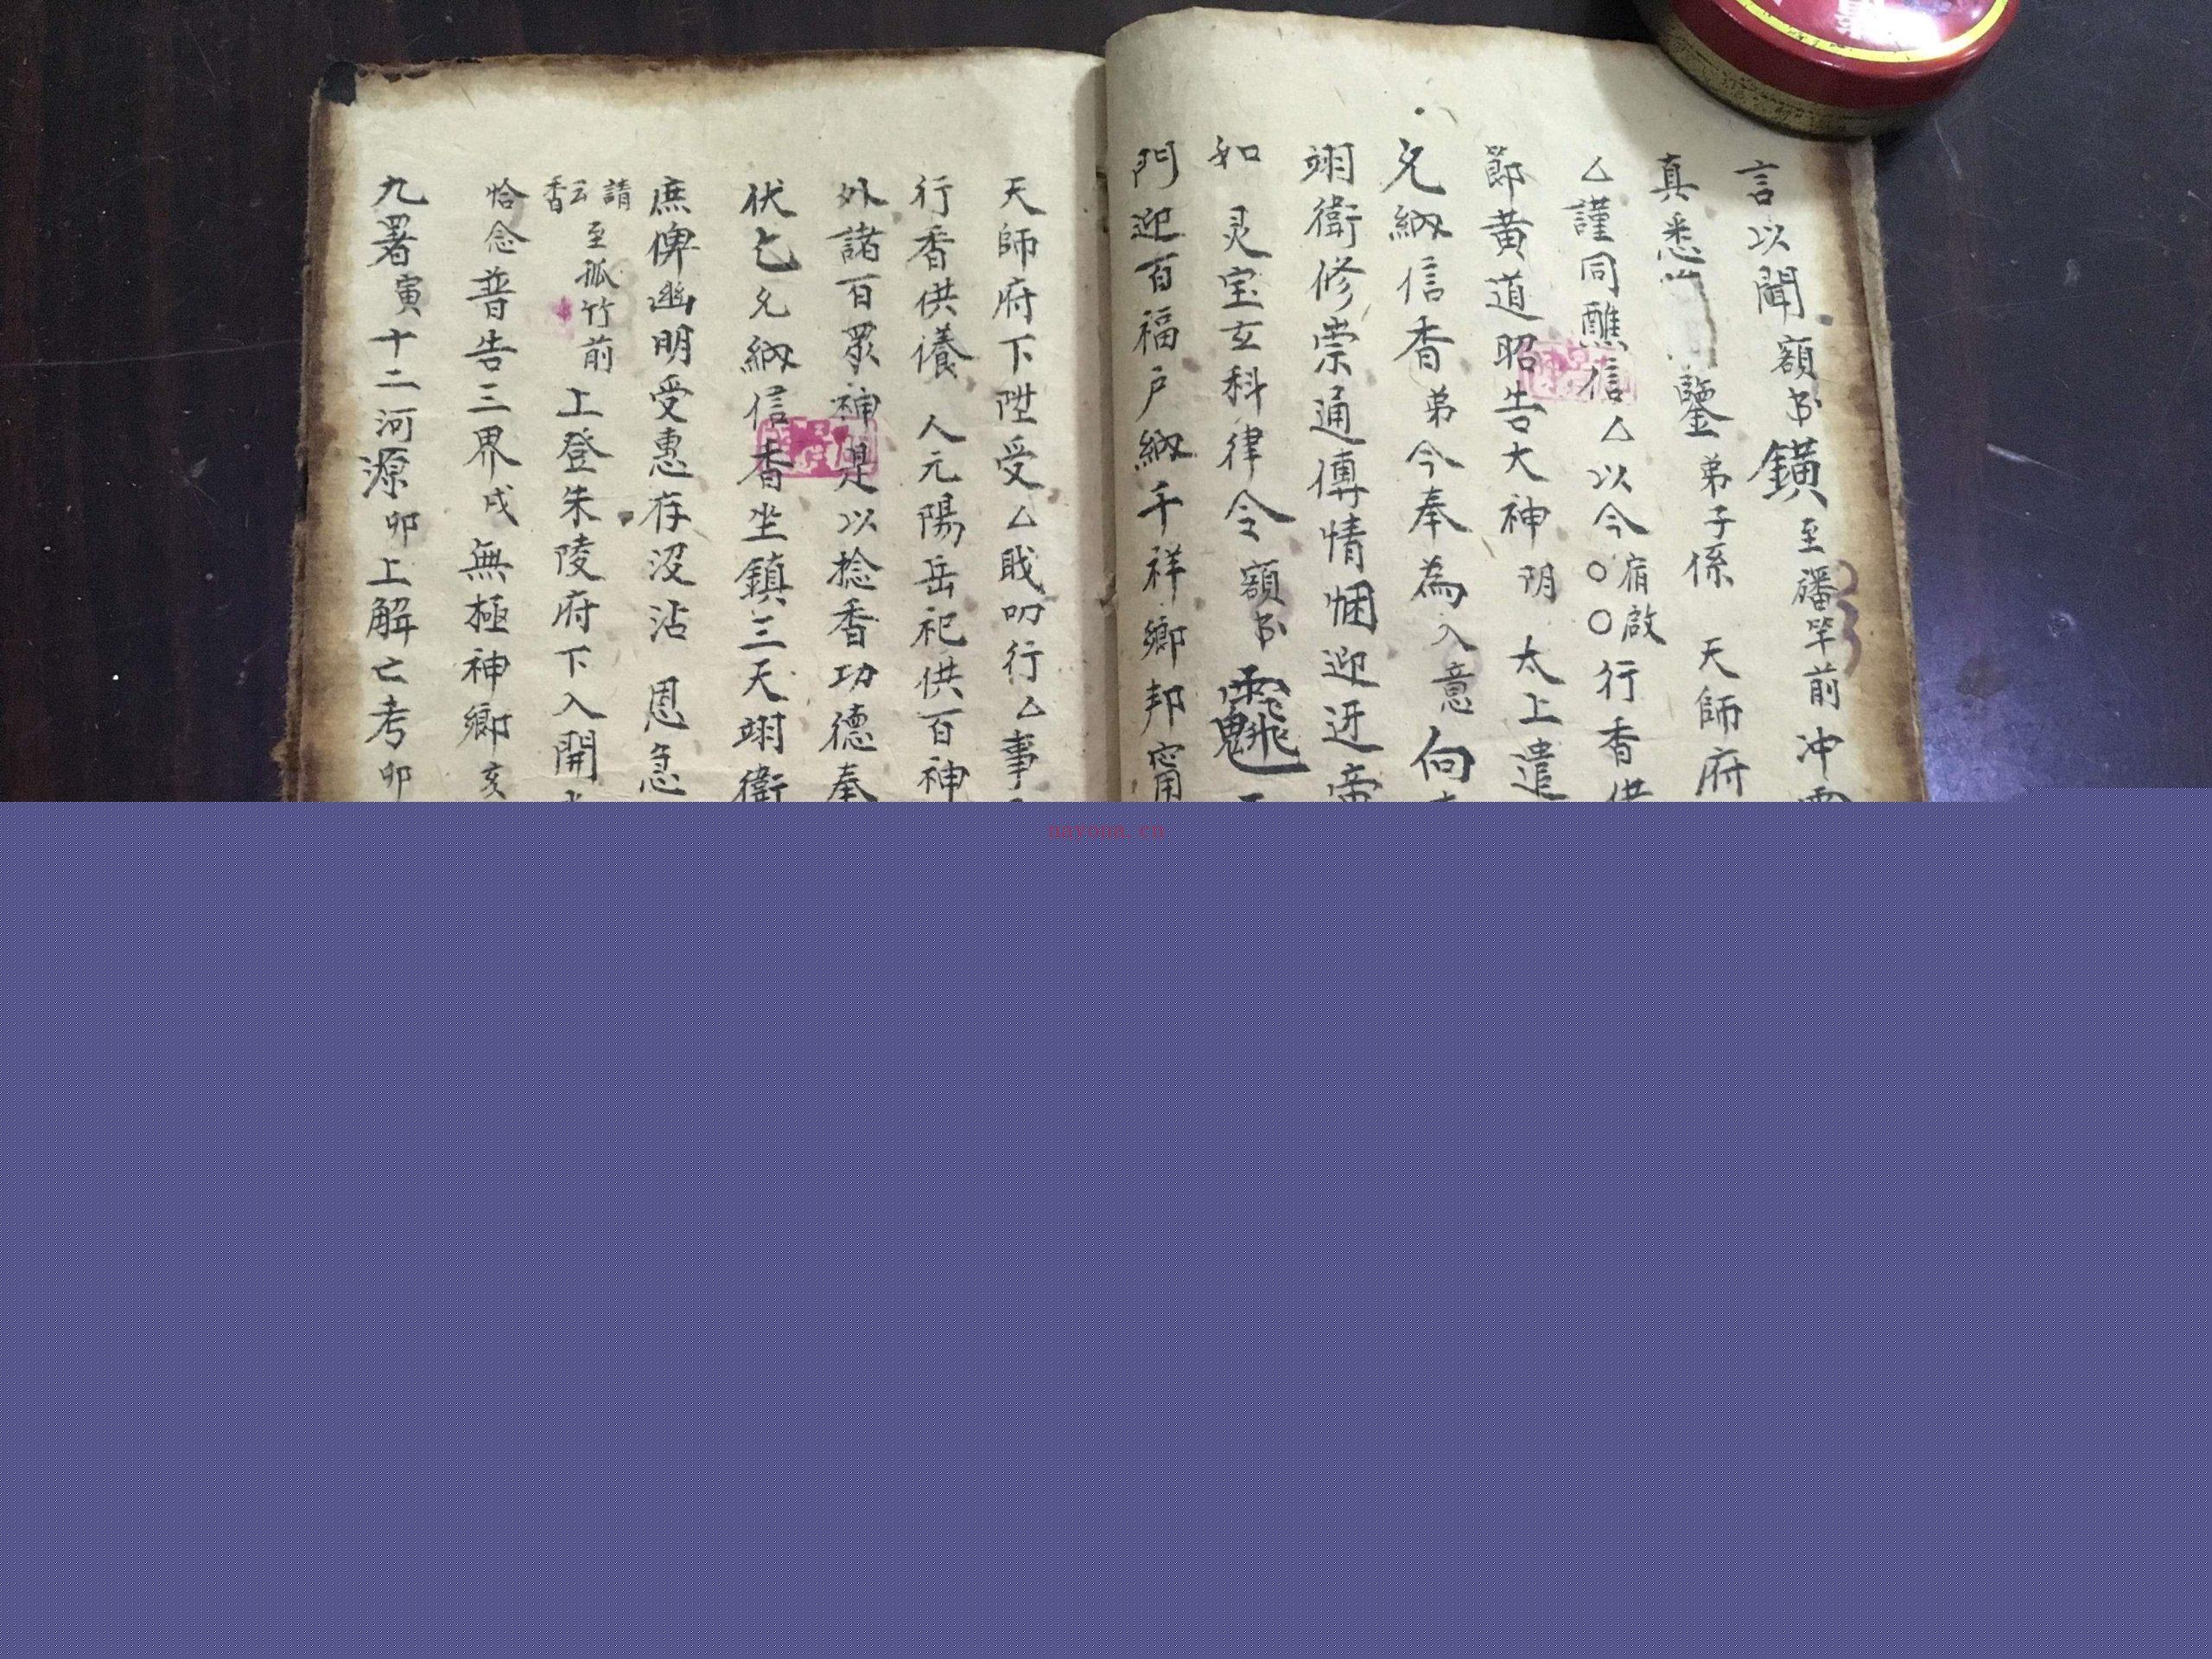 言以聞額書鐄至旛竿前冲
真悉 鑒弟子係 天師府
厶謹同醮信厶以今○○肩啟行香供
節黄道昭告大神 明 太上遣
允納信香弟今奉為入意向
翊衛修崇通傳情悃迎迓帝
如 灵宝玄科律令額書
門迎百福户納千祥鄉邦甯
天師府下陞受厶戝叨行厶事
行香供養 人元陽岳祀供百神
外諸百眾神是以捻香功德奉
伏乞允納信香坐鎮三天翊衛
庶俾幽明受惠存沒沾 恩急
請至孤竹前
香云
上登朱陵府下入開
恰念普告三界戌無極神鄉亥
九署寅十二河源卯上解亡考卯